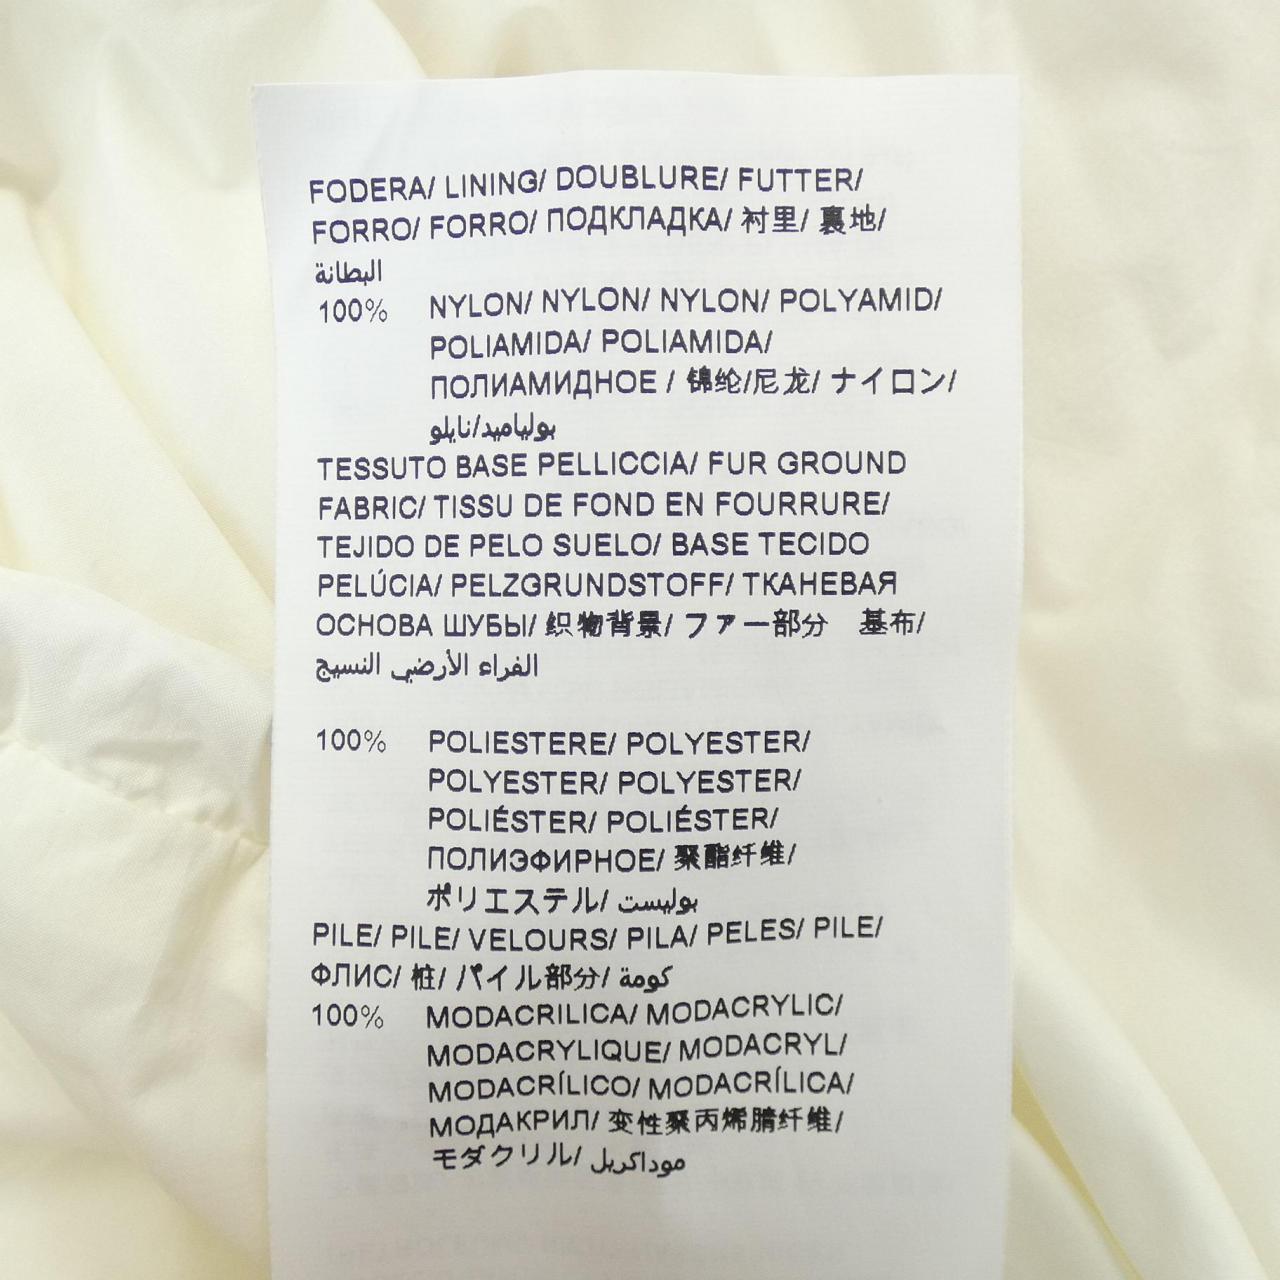 FODERA/ LINING/ DOUBLURE/ FUTTER/
FORRO/ FORRO/ ПОДКЛАДКА/ 衬里/ 裏地/
البطانة
100% NYLON/ NYLON/ NYLON/ POLYAMID/
POLIAMIDA/ POLIAMIDA/
ПОЛИАМИДНОЕ / 锦纶/尼龙/ ナイロン/
بولياميد/نايلو
TESSUTO BASE PELLICCIA/ FUR GROUND
FABRIC/ TISSU DE FOND EN FOURRURE/
TEJIDO DE PELO SUELO/ BASE TECIDO
PELÚCIA/ PELZGRUNDSTOFF/ ТКАНЕВАЯ
ОСНОВА ШУБЫ/ 织物背景/ ファー部分 基布/
الفراء الأرضي النسيج
100% POLIESTERE/ POLYESTER/
POLYESTER/ POLYESTER/
POLIÉSTER/ POLIÉSTER/
ПОЛИЭФИРНОЕ/ 聚酯纤维/
ポリエステル/ بوليست
PILE/ PILE/ VELOURS/ PILA/ PELES/ PILE/
ФЛИС/ 桩/ パイル部分/ كومة
100% MODACRILICA/ MODACRYLIC/
MODACRYLIQUE/ MODACRYL/
MODACRÍLICO/ MODACRÍLICA/
МОДАКРИЛ/ 变性聚丙烯腈纤维/
モダクリル/ موداكريل